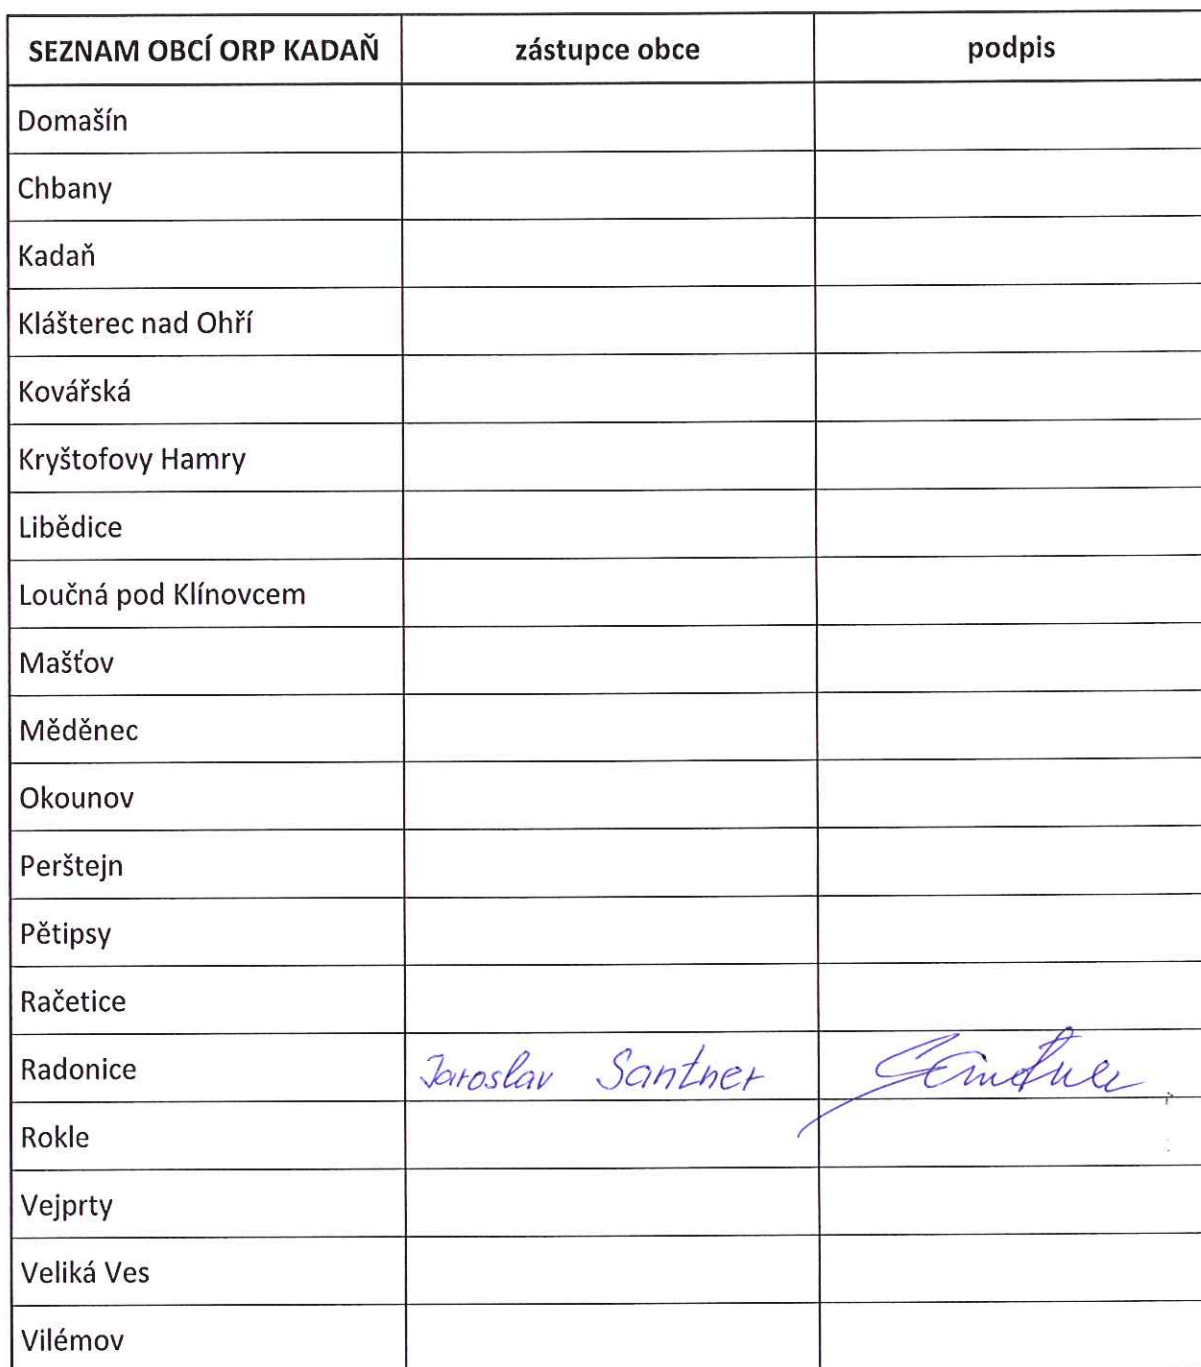 SEZNAM OBCÍ ORP KADAŇ zástupce obce podpis
Domašín
Chbany
Kadaň
Klášterec nad Ohří
Kovářská
Kryštofovy Hamry
Libědice
Loučná pod Klínovcem
Mašťov
Měděnec
Okounov
Perštejn
Pětipsy
Račetice
Radonice Jaroslav Santner
Rokle
Vejprty
Veliká Ves
Vilémov